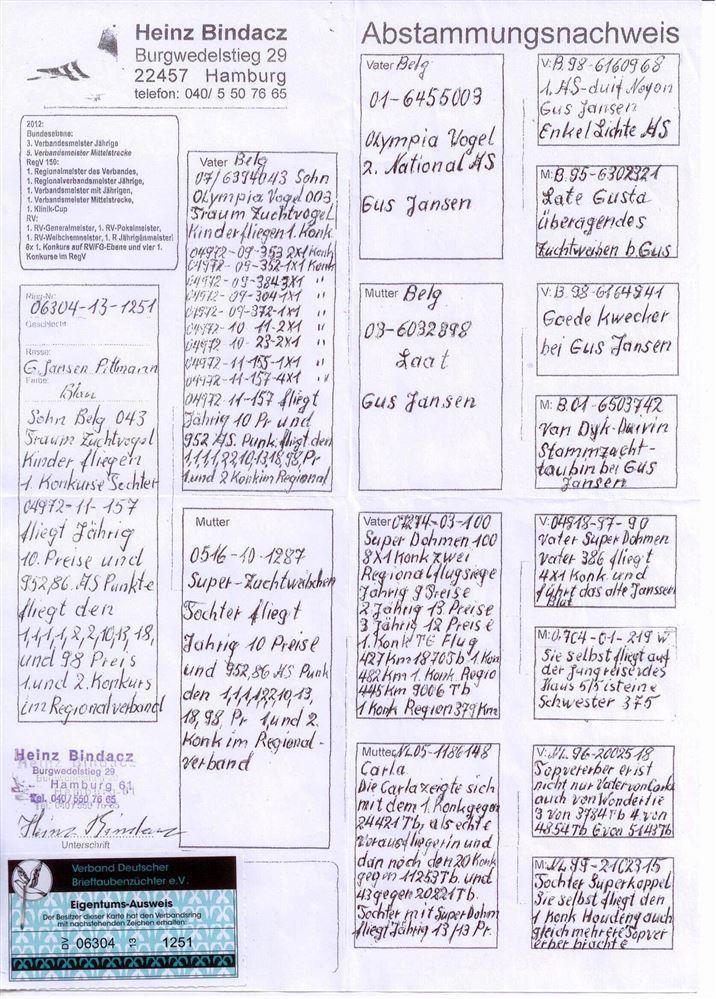 Heinz Bindacz
Burgwedelstieg 29
22457 Hamburg
telefon: 040/ 5 50 76 65
Abstammungsnachweis
2012:
Bundesebene:
3. Verbandsmeister Jährige
5. Verbandsmeister Mittelstrecke
RegV 150:
1. Regionalmeister des Verbandes,
1. Regionalverbandsmeister Jährige,
1. Verbandsmeister mit Jährigen,
1. Verbandsmeister Mittelstrecke,
1. Klinik-Cup
RV:
1. RV-Generalmeister, 1. RV-Pokalmeister,
1. RV-Weibchenmeister, 1. R Jährigenmeister
8x 1. Konkurs auf RV/FG-Ebene und vier 1.
Konkurse im RegV
Ring-Nr.
06304-13-1251
Geschlecht
Rasse:
G. Jansen Pittmann
Farbe:
Blau
Sohn Belg 043
Traum Zuchtvogel
Kinder fliegen
1. Konkurse Tochter
04972-11-157
fliegt Jährig
10. Preise und
952,86. AS Punkte
fliegt den
1,1,1,1,2,2,10,13,18,
und 98 Preis
1. und 2. Konkurs
im Regionalverband
Heinz Bindacz
Burgwedelstieg 29
Hamburg 61
Tel. 040/550 76 65
Heinz Bindacz
Unterschrift
Verband Deutscher
Brieftaubenzüchter e.V.
Eigentums-Ausweis
Der Besitzer dieser Karte hat den Verbandsring
mit nachstehenden Zeichen erhalten:
DV 06304 13 1251
Vater Belg
07/6394043 Sohn
Olympia Vogel 003
Traum Zuchtvogel
Kinder fliegen 1. Konk
04972-09-353 2X1 Konk
04972-09-352-1X1 Konk
04972-09-384 3X1 "
04972-09-304-1X1 "
04972-09-372-1X1 "
04972 10-11-2X1 "
04972 10-23-2X1 "
04972-11-155-1X1 "
04972-11-157-4X1 "
04972 11-157 fliegt
Jährig 10 Pr und
952 AS. Punk. fliegt den
1,1,1,1,2,2,10,13,18,98, Pr
1. und 2 Konk im Regional
Mutter
0516-10-1287
Super-Zuchtweibchen
Tochter fliegt
Jährig 10 Preise
und 952,86 AS Punk
den 1,1,1,1,2,2,10,13,
18,98, Pr 1. und 2.
Konk im Regional-
verband
Vater Belg
01-6455003
Olympia Vogel
2. National AS
Gus Jansen
Mutter Belg
03-6032898
Laat
Gus Jansen
Vater 07274-03-100
Super Dohmen 100
8X1 Konk zwei
Regionalflugsiege
Jährig 9 Preise
2 Jährig 13 Preise
3 Jährig 12 Preise
1. Konk TG Flug
427 Km 18705 Tb 1. Kon
482 Km 1. Konk. Regio
445 Km 9006 Tb
1 Konk Region 379 Km
Mutter NL 05-1186148
Carla
Die Carla zeigte sich
mit dem 1. Konk gegen
24421 Tb, als echte
Vorausfliegerin und
dan noch den 20 Konk
gegen 11253 Tb. und
43 gegen 20821 Tb.
Tochter mit Super Dohm
fliegt Jährig 13/13 Pr.
V: B. 98-6160968
1. AS-duif Noyon
Gus Jansen
Enkel Lichte AS
M: B. 95-6302321
Late Gusta
überagendes
Zuchtweiben b. Gus
V: B. 98-6164841
Goede Kwecker
bei Gus Jansen
M: B. 01-6503742
Van Dyk-Duivin
Stammzucht-
taubin bei Gus
Jansen
V: 04918-97-90
Vater Super Dohmen
Vater 386 fliegt
4X1 Konk und
führt das alte Janssen
Blut
M: 0.704-01-219 W
Sie selbst fliegt auf
der Jungreise des
Haus 5/5 ist eine
Schwester 375
V: NL. 96-2002518
Topvererber er ist
nicht nur Vater von Carla
auch von Wonderfie
3 von 3784 Tb 4 von
4854 Tb 6 von 5143 Tb
M: NL. 99-2102315
Tochter Superkoppel
Sie selbst fliegt den
1 Konk Houdeng auch
gleich mehrere Topver
erber brachte